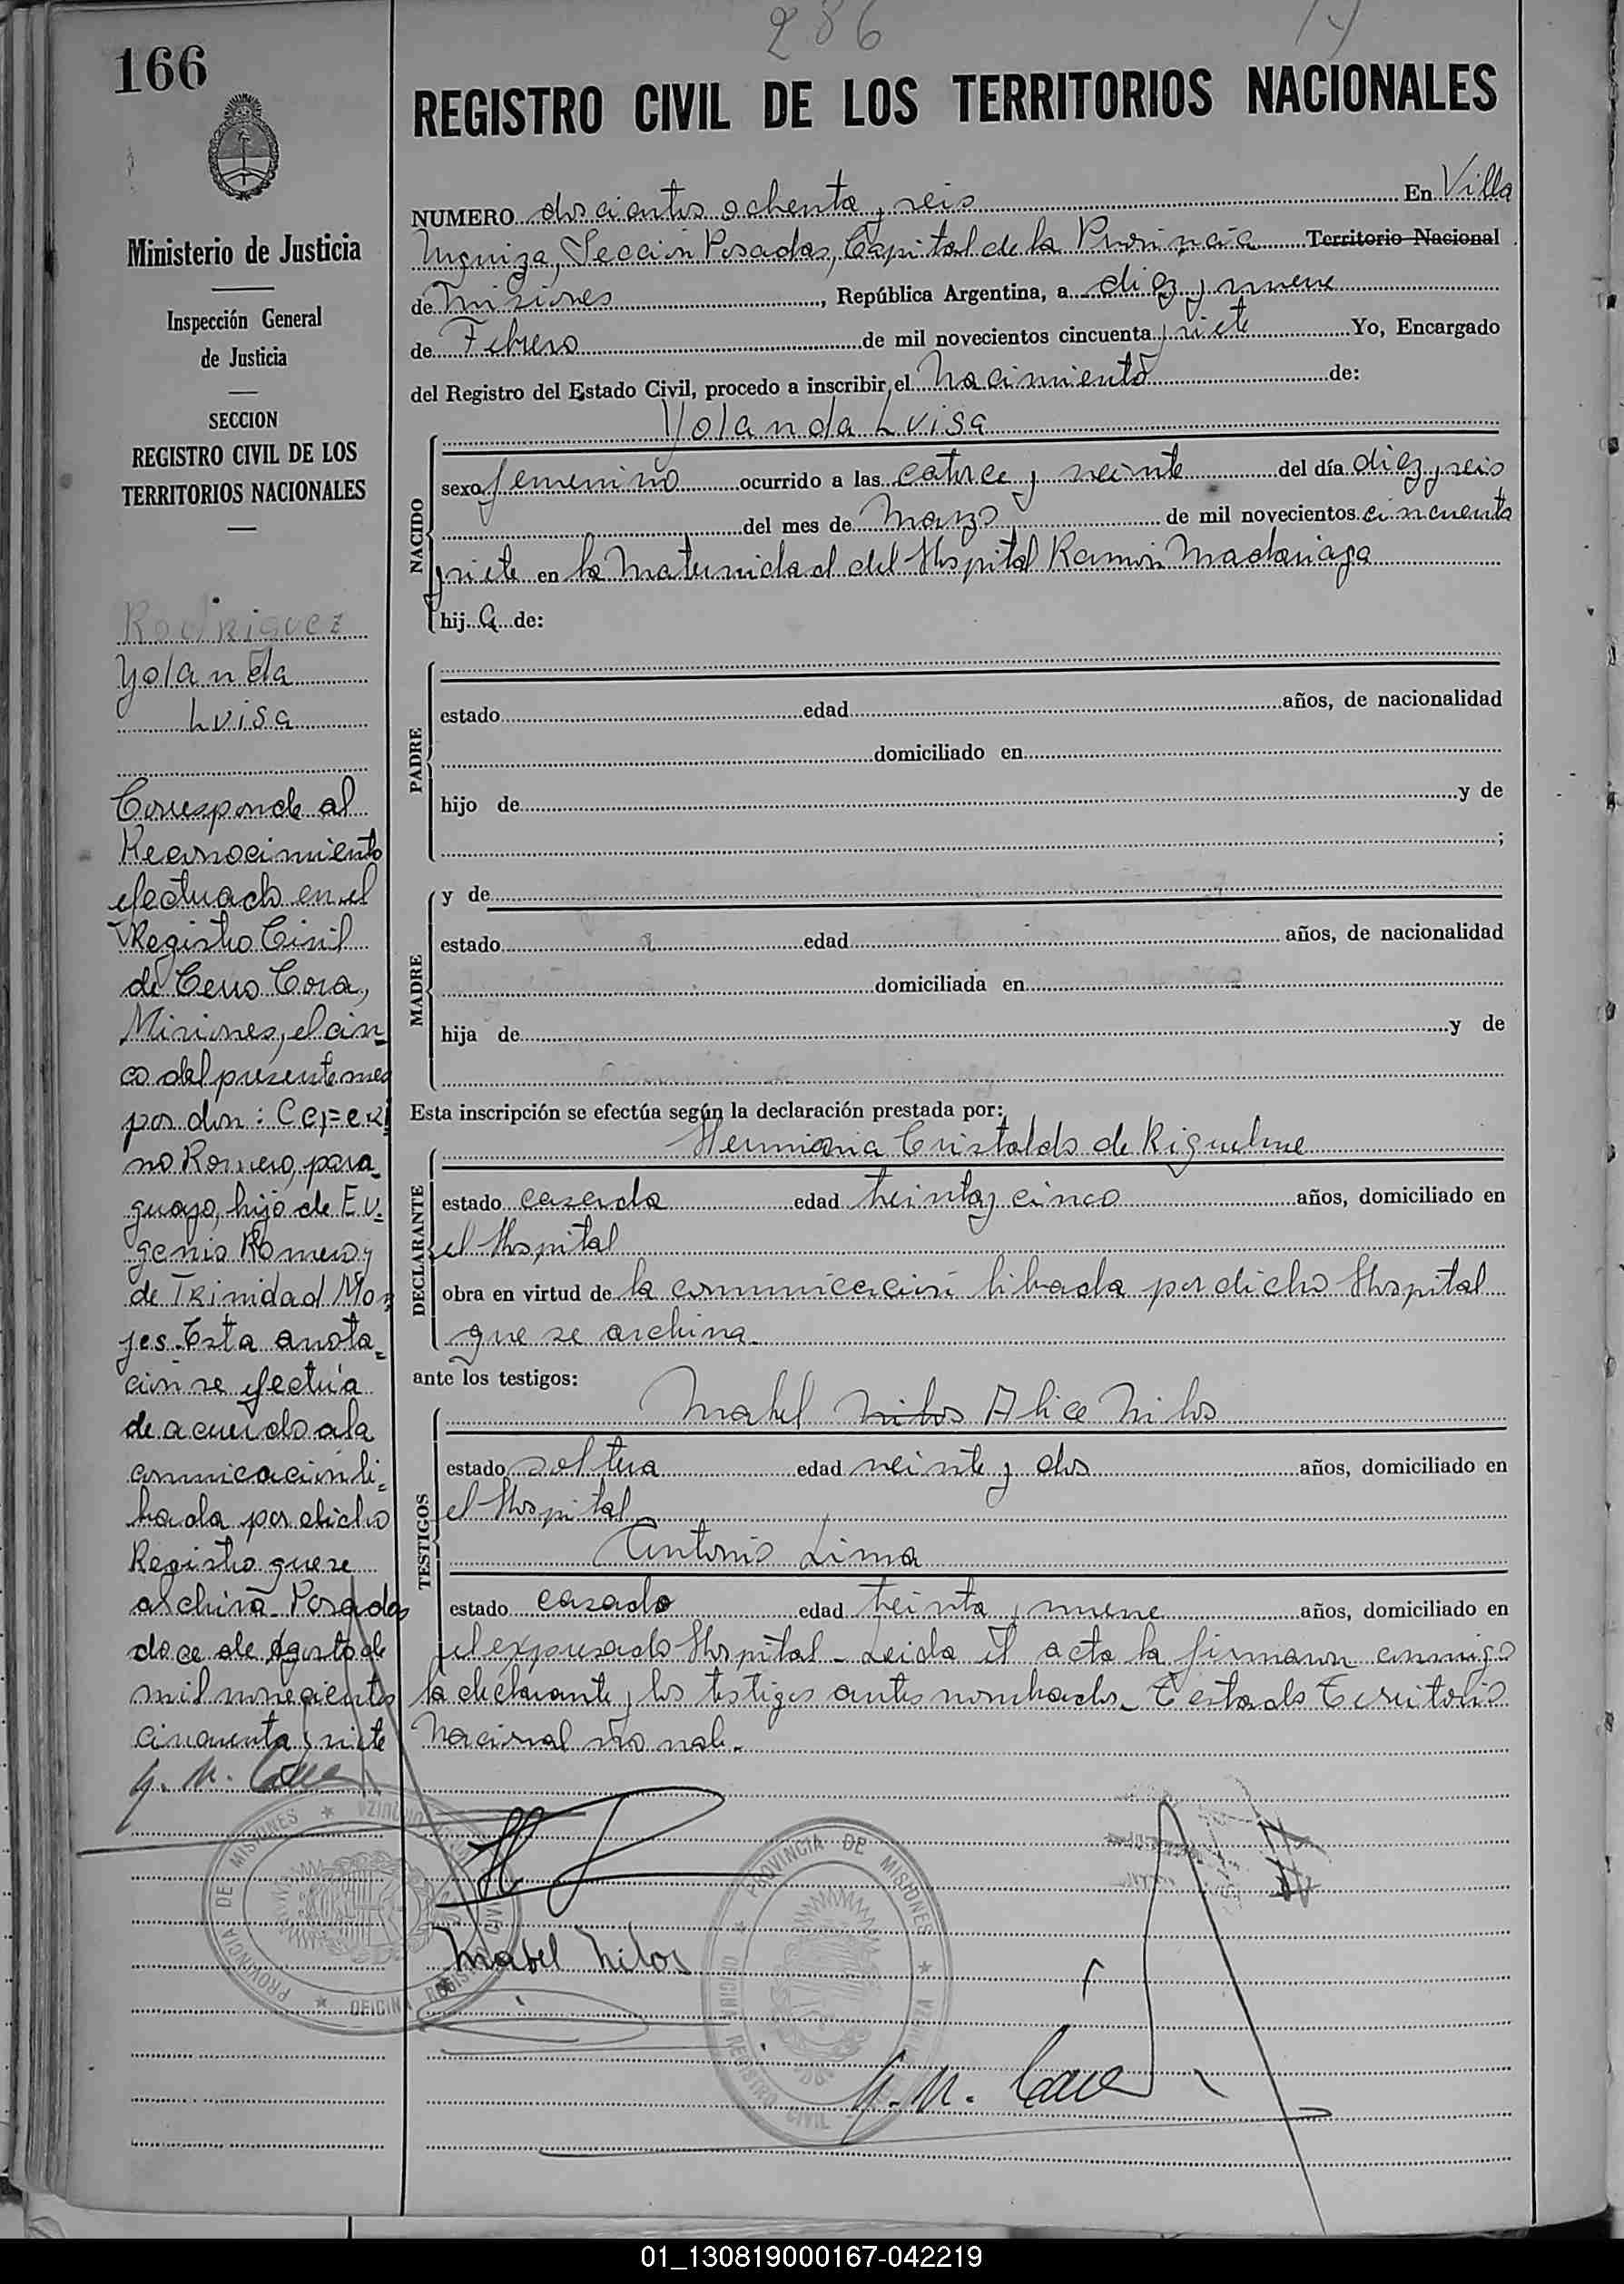 286
166
REGISTRO CIVIL DE LOS TERRITORIOS NACIONALES
Ministerio de Justicia
Inspección General
de Justicia
SECCION
REGISTRO CIVIL DE LOS
TERRITORIOS NACIONALES
Rodriguez
Yolanda
Luisa
Corresponde al
Reconocimiento
efectuado en el
Registro Civil
de Cerro Cora,
Misiones, el cin
co del presente mes
por don: Ceferi
no Romero, para-
guayo, hijo de Eu-
genio Romero y
de Trinidad Mon
jes. Esta anota-
ción se efectúa
de acuerdo a la
comunicación li-
brada por dicho
Registro que se
archiva. Posadas
doce de Agosto de
mil novecientos
cincuenta y siete
NUMERO doscientos ochenta y seis En Villa
Urquiza, Sección Posadas, Capital de la Provincia Territorio Nacional
de Misiones, República Argentina, a diez y nueve
de Febrero de mil novecientos cincuenta y siete Yo, Encargado
del Registro del Estado Civil, procedo a inscribir el Nacimiento de:
NACIDO
Yolanda Luisa
sexo femenino ocurrido a las catorce y veinte del día diez y seis
del mes de Marzo de mil novecientos cincuenta
y siete en la Maternidad del Hospital Ramón Madariaga
hij a de:
PADRE
estado edad años, de nacionalidad
domiciliado en
hijo de y de
;
MADRE
y de
estado edad años, de nacionalidad
domiciliada en
hija de y de
Esta inscripción se efectúa según la declaración prestada por:
DECLARANTE
Herminia Cristaldo de Riquelme
estado casada edad treinta y cinco años, domiciliado en
el Hospital
obra en virtud de la comunicación librada por dicho Hospital
que se archiva.
ante los testigos:
TESTIGOS
Mabel Nilos Alice Nilos
estado soltera edad veinte y dos años, domiciliado en
el Hospital
Antonio Lima
estado casado edad treinta y nueve años, domiciliado en
el expresado Hospital. Leida el acta la firmaron conmigo
la declarante y los testigos antes nombrados. Testado Territorio
Nacional no vale.
Mabel Nilos
PROVINCIA DE MISIONES
OFICINA REGISTRO CIVIL
PROVINCIA DE MISIONES
OFICINA REGISTRO CIVIL
01_130819000167-042219